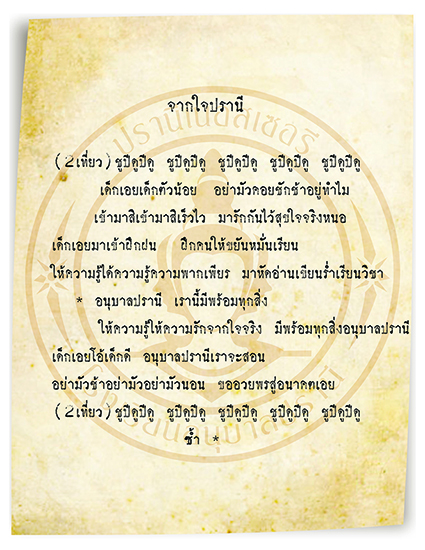 จากใจปรานี
(2เที่ยว) ชูปีดูปีดู ชูปีดูปีดู ชูปีดูปีดู ชูปีดูปีดู ชูปีดูปีดู
เด็กเอยเด็กตัวน้อย อย่ามัวคอยชักช้าอยู่ทำไม
เข้ามาสิเข้ามาสิเร็วไว มารักกันไว้สุขใจจริงหนอ
เด็กเอยมาเข้าฝึกฝน ฝึกตนให้ขยันหมั่นเรียน
ให้ความรู้ได้ความรู้ความพากเพียร มาหัดอ่านเขียนร่ำเรียนวิชา
* อนุบาลปรานี เรานี้มีพร้อมทุกสิ่ง
ให้ความรู้ให้ความรักจากใจจริง มีพร้อมทุกสิ่งอนุบาลปรานี
เด็กเอยโอ้เด็กดี อนุบาลปรานีเราจะสอน
อย่ามัวช้าอย่ามัวอย่ามัวนอน ขออวยพรสู่อนาคตเอย
(2เที่ยว) ชูปีดูปีดู ชูปีดูปีดู ชูปีดูปีดู ชูปีดูปีดู ชูปีดูปีดู
ซ้ำ *
ปรานีเนิสเซอรี่